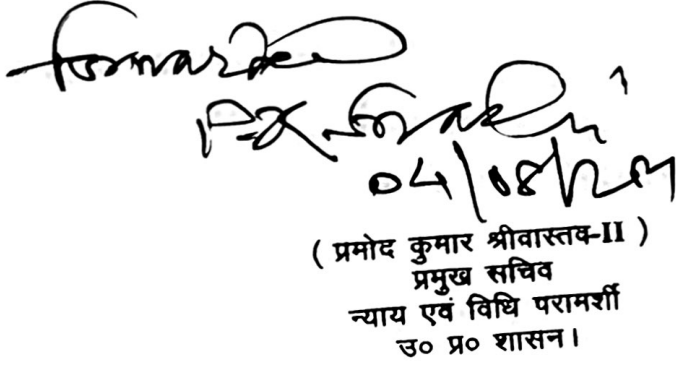 Forwarded
04/08/2021
( प्रमोद कुमार श्रीवास्तव-II )
प्रमुख सचिव
न्याय एवं विधि परामर्शी
उ० प्र० शासन।